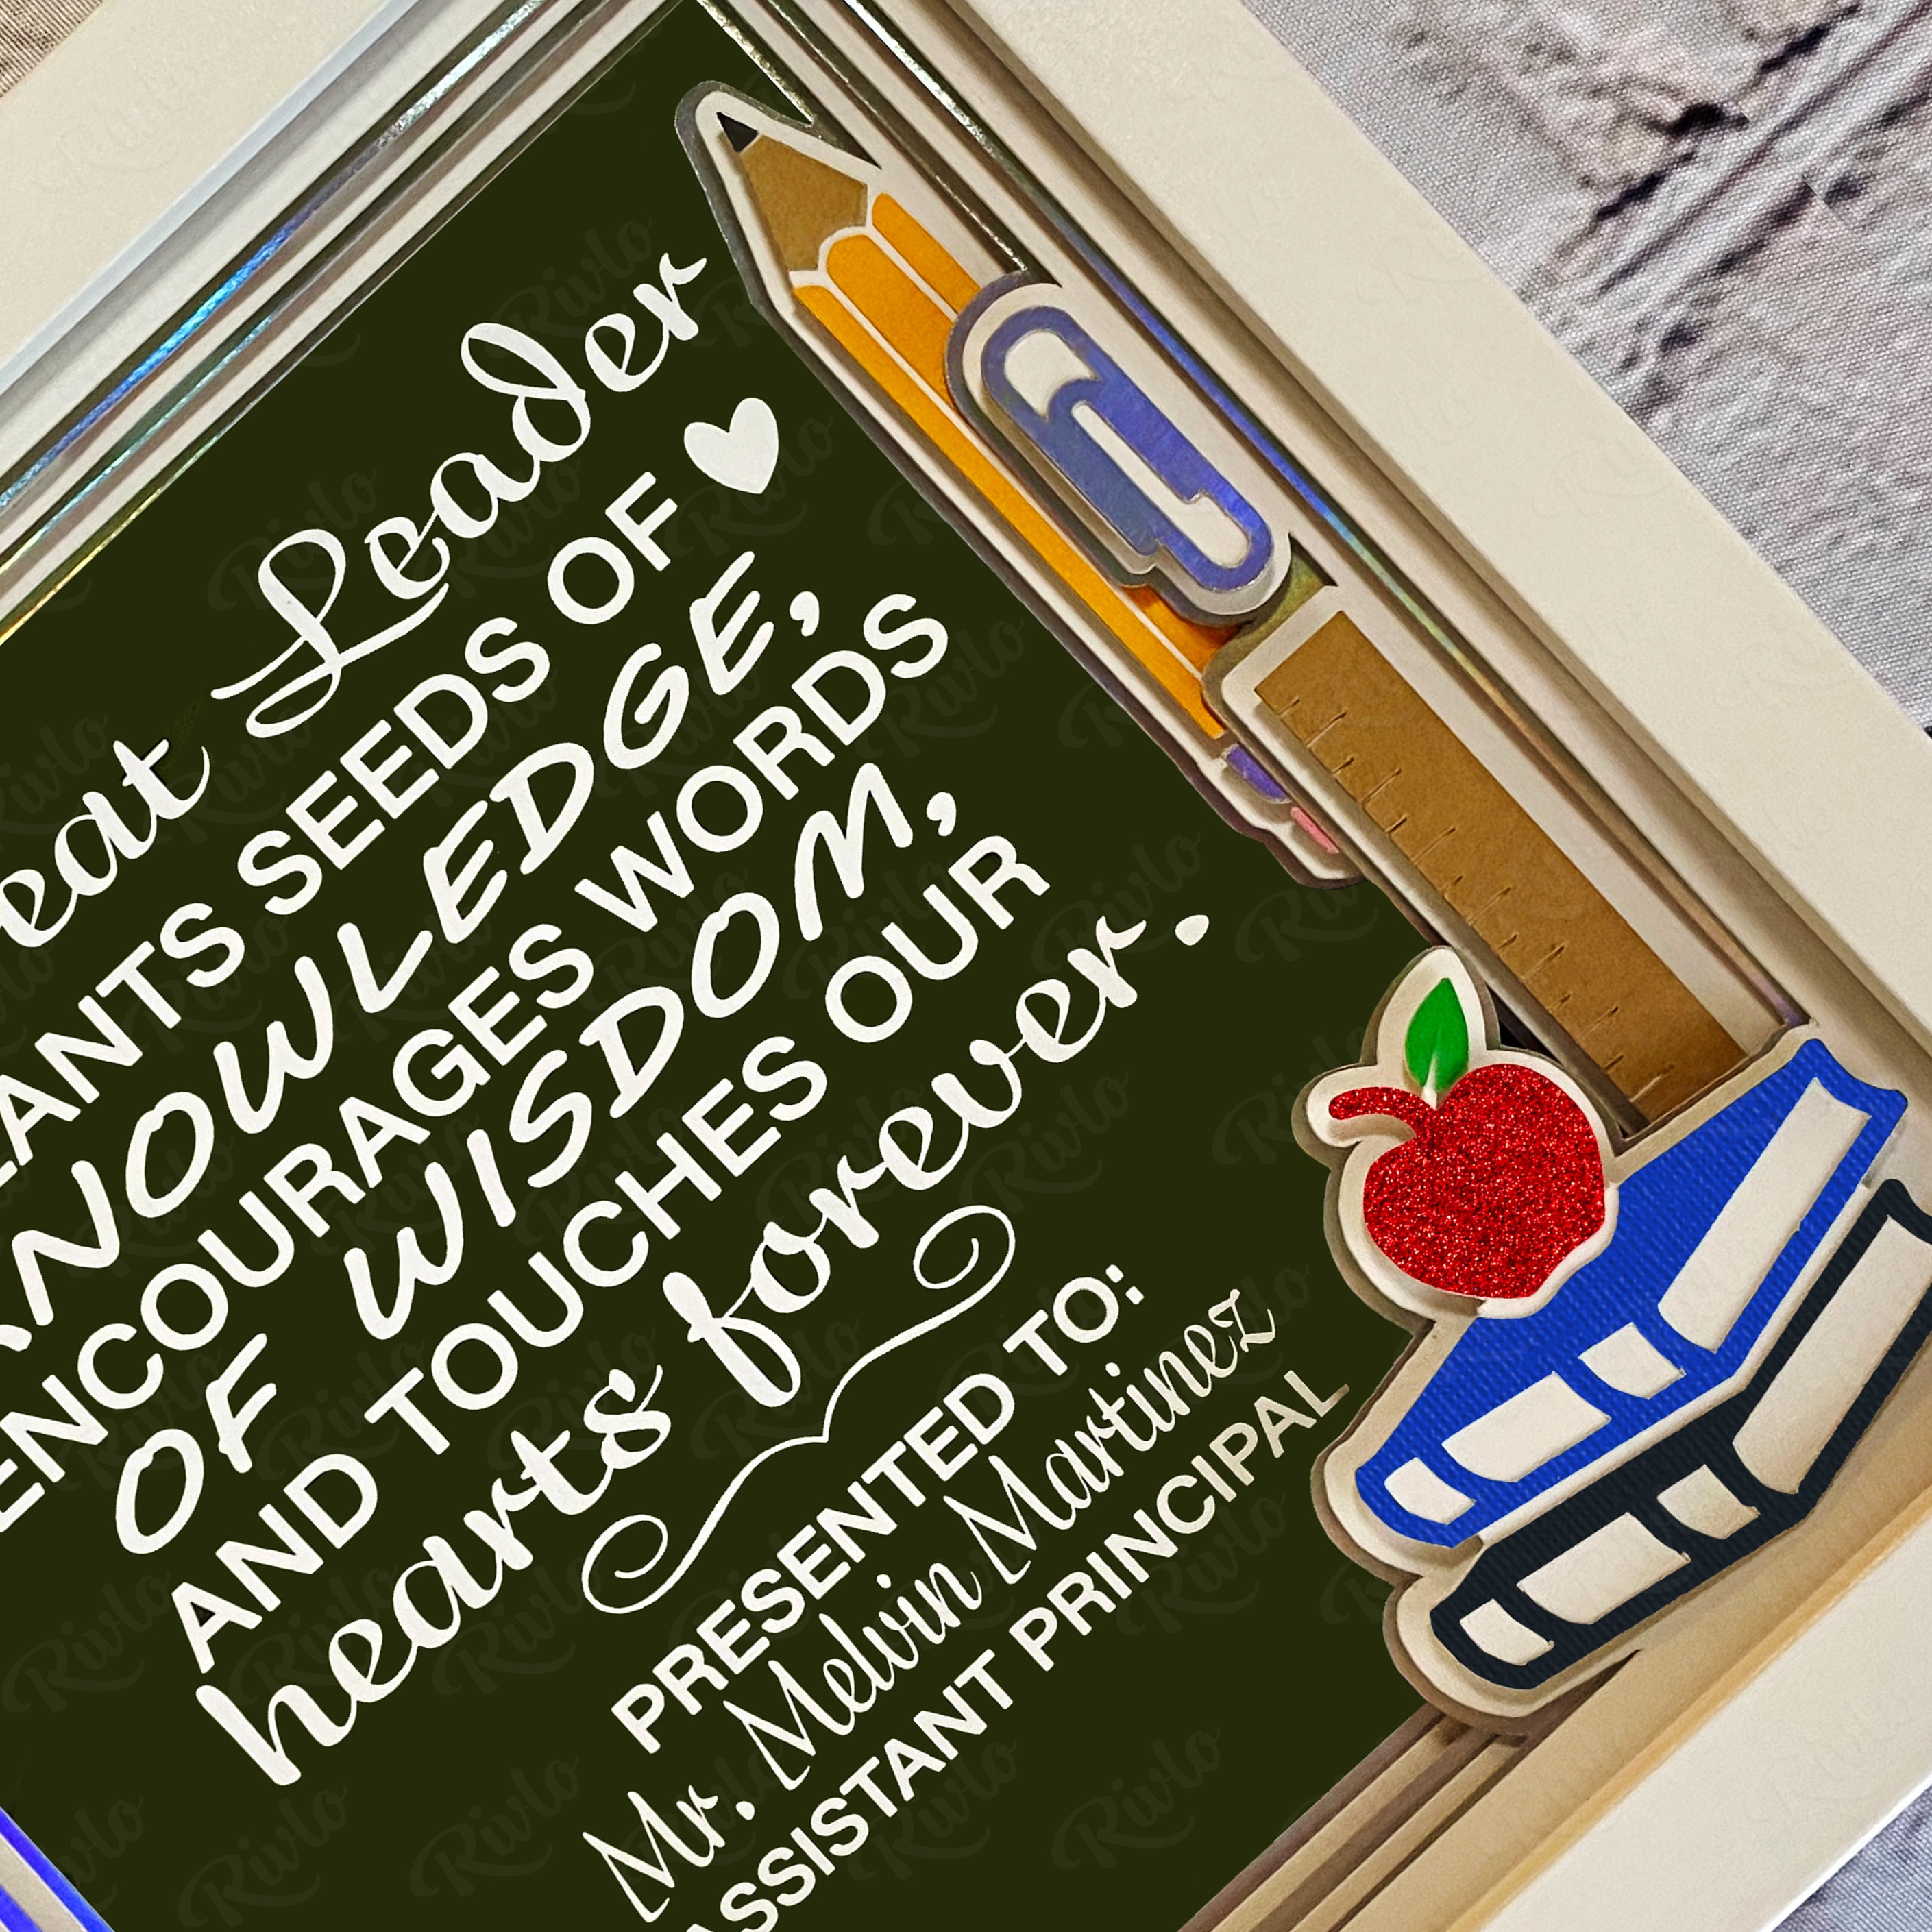 eat Leader
LANTS SEEDS OF
NOWLEDGE,
ENCOURAGES WORDS
OF WISDOM,
AND TOUCHES OUR
hearts forever.
PRESENTED TO:
Mr. Melvin Martinez
ASSISTANT PRINCIPAL
Rivlo